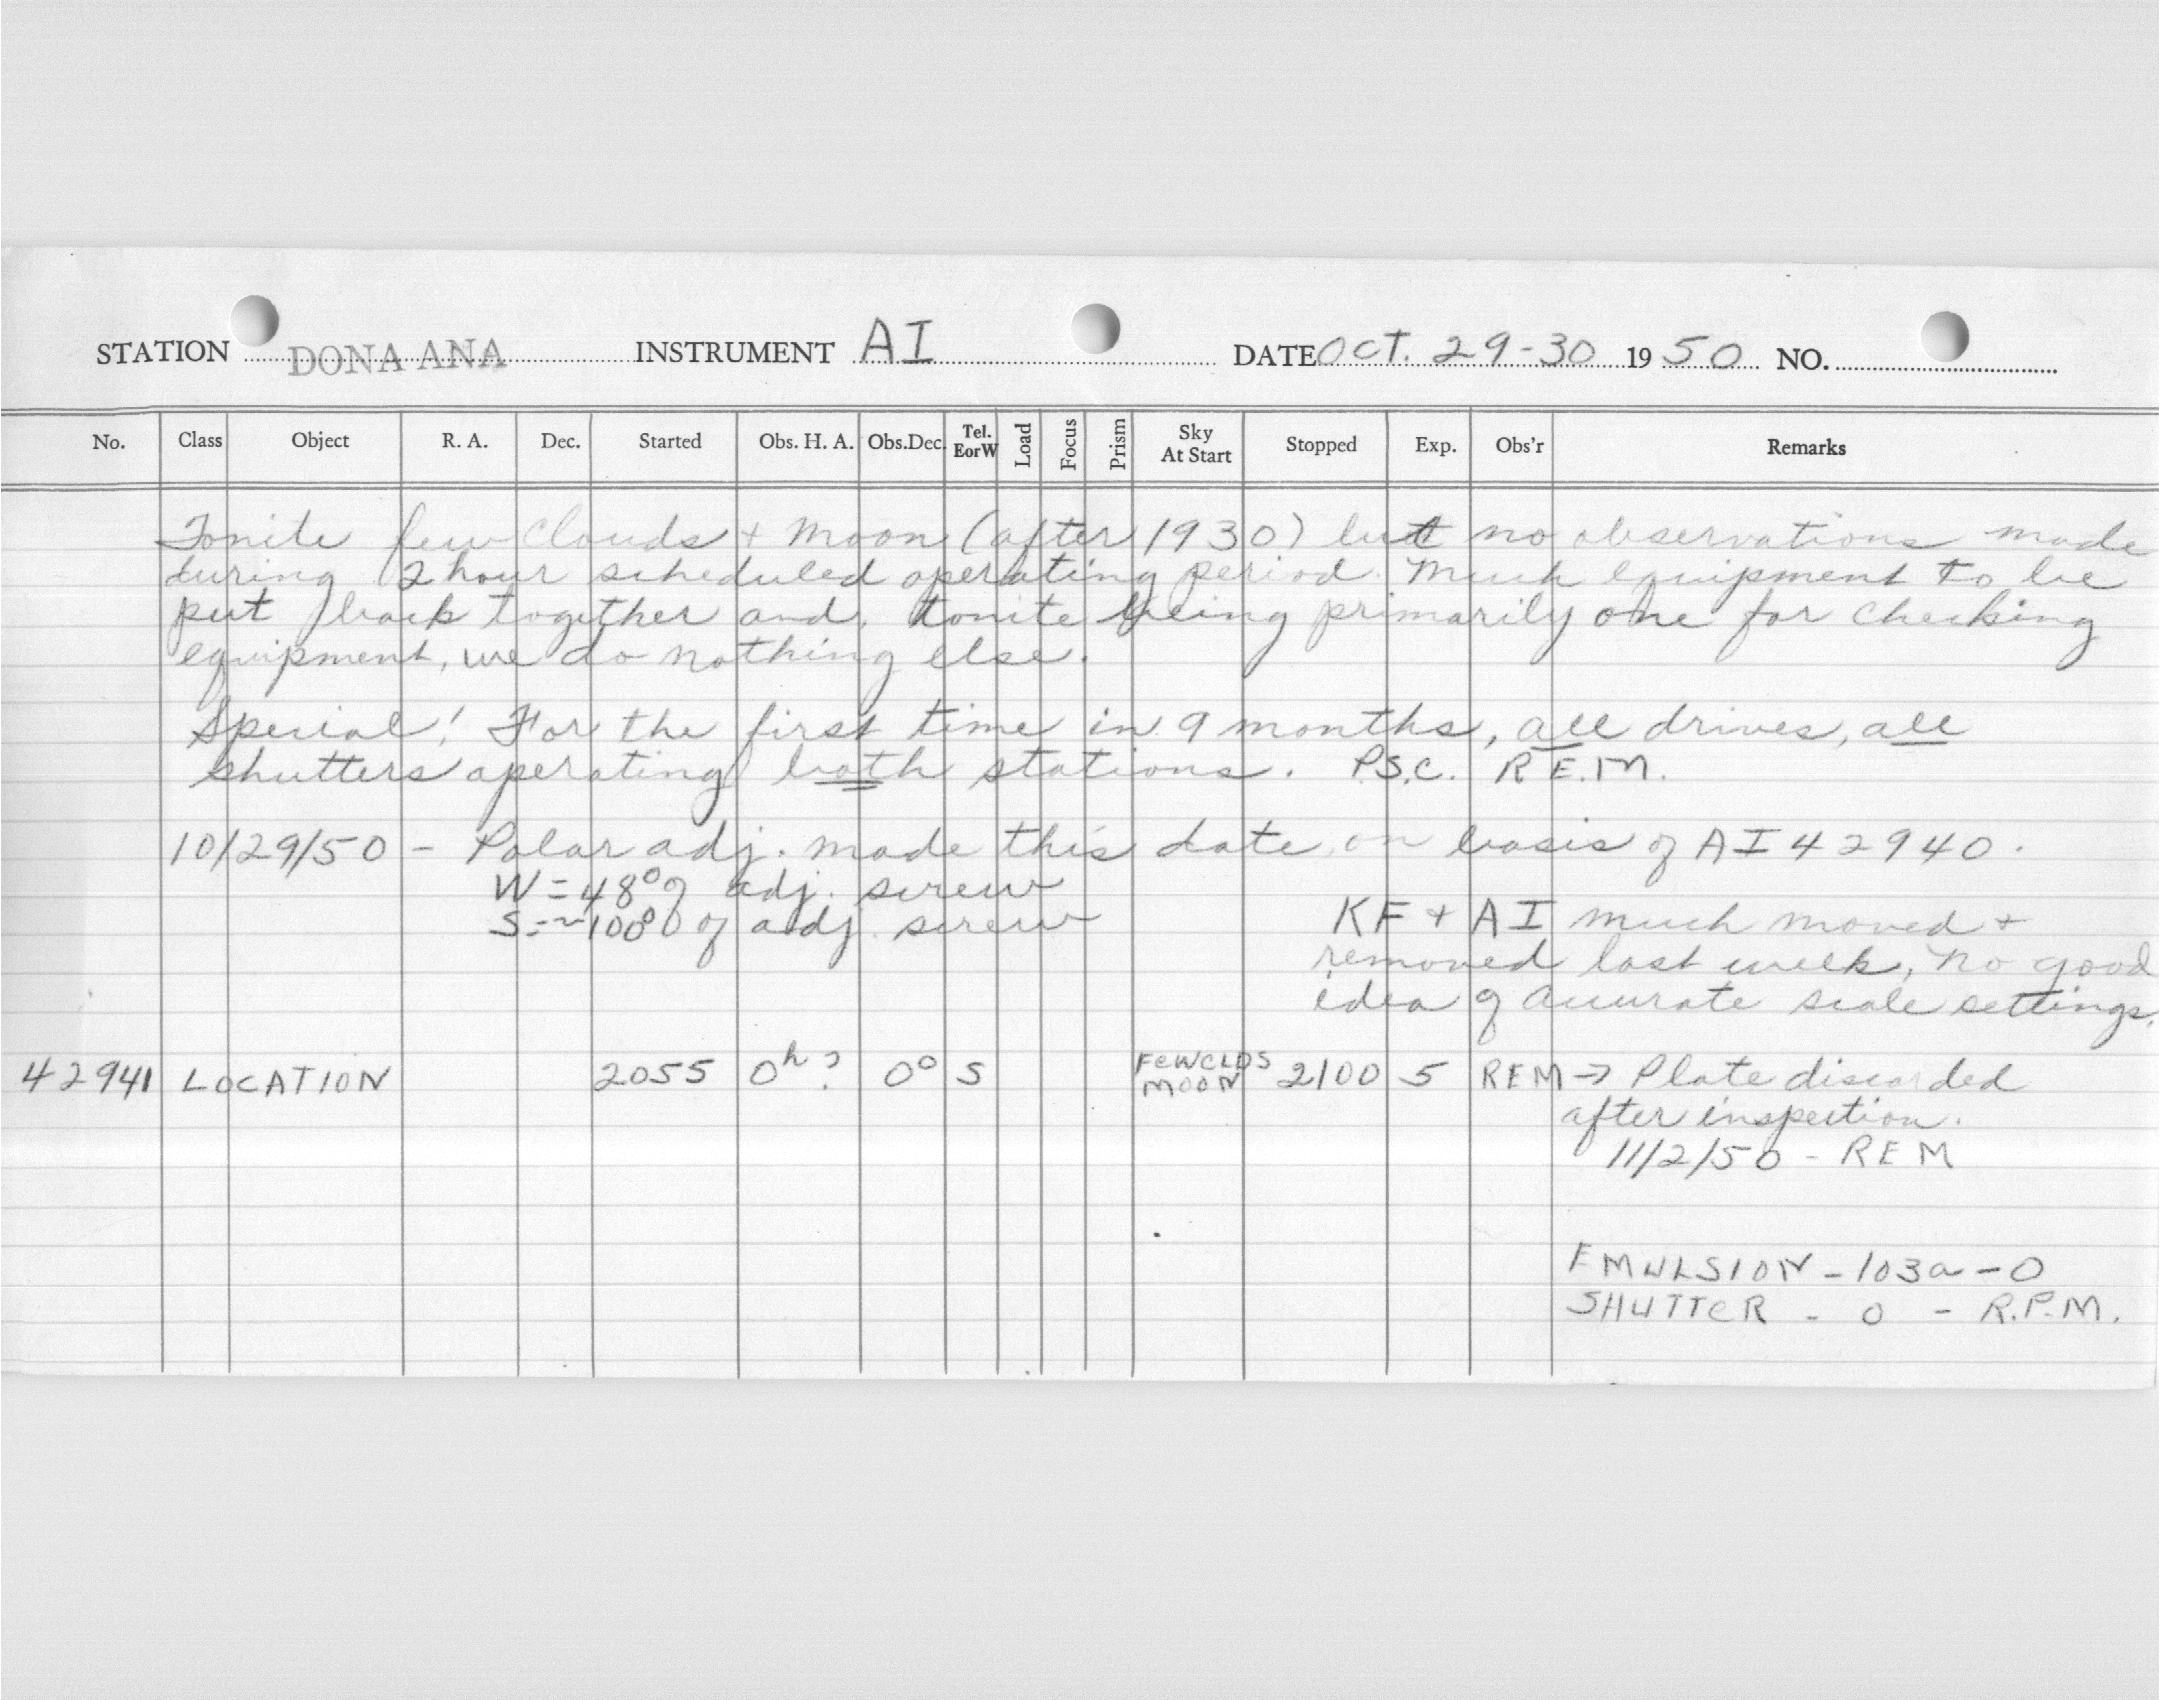 STATION DONA ANA INSTRUMENT AI DATE OCT. 29-30 1950 NO.
No. Class Object R. A. Dec. Started Obs. H. A. Obs.Dec. Tel. EorW Load Focus Prism Sky At Start Stopped Exp. Obs'r Remarks
Tonite few clouds + moon (after 1930) but no observations made
during 2 hour scheduled operating period. Much equipment to be
put back together and, tonite being primarily one for checking
equipment, we do nothing else.
Special! For the first time in 9 months, all drives, all
shutters operating both stations. P.S.C. R.E.M.
10/29/50 - Polar adj. made this date, on basis of AI 42940.
W = 48° of adj. screw
S = ~100° of adj. screw
KF + AI much moved +
removed last week, no good
idea of accurate scale settings.
42941 LOCATION 2055 0h? 0° S FEW CLDS MOON 2100 5 REM → Plate discarded
after inspection.
11/2/50 - REM
EMULSION - 103a - O
SHUTTER - 0 - R.P.M.